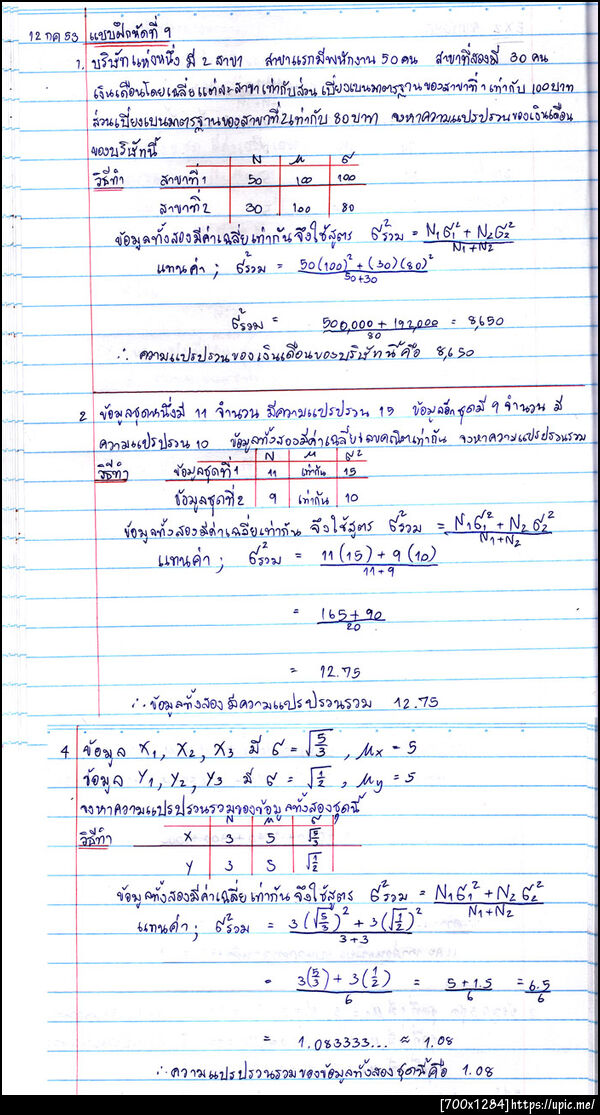 12 กค 53 แบบฝึกหัดที่ 9
1. บริษัทแห่งหนึ่ง มี 2 สาขา สาขาแรกมีพนักงาน 50 คน สาขาที่สองมี 30 คน
เงินเดือนโดยเฉลี่ยแต่ละสาขาเท่ากับส่วนเบี่ยงเบนมาตรฐานของสาขาที่ 1 เท่ากับ 100 บาท
ส่วนเบี่ยงเบนมาตรฐานของสาขาที่ 2 เท่ากับ 80 บาท จงหาความแปรปรวนของเงินเดือน
ของบริษัทนี้
N μ σ
วิธีทำ สาขาที่ 1 50 100 100
สาขาที่ 2 30 100 80
ข้อมูลทั้งสองมีค่าเฉลี่ยเท่ากัน จึงใช้สูตร σ²รวม = (N₁σ₁² + N₂σ₂²)/(N₁+N₂)
แทนค่า ; σ²รวม = (50(100)² + (30)(80)²)/(50+30)
σ²รวม = (500,000 + 192,000)/80 = 8,650
∴ ความแปรปรวนของเงินเดือนของบริษัทนี้คือ 8,650
2 ข้อมูลชุดหนึ่งมี 11 จำนวน มีความแปรปรวน 15 ข้อมูลอีกชุดมี 9 จำนวน มี
ความแปรปรวน 10 ข้อมูลทั้งสองมีค่าเฉลี่ยเลขคณิตเท่ากัน จงหาความแปรปรวนรวม
N μ σ²
วิธีทำ ข้อมูลชุดที่ 1 11 เท่ากัน 15
ข้อมูลชุดที่ 2 9 เท่ากัน 10
ข้อมูลทั้งสองมีค่าเฉลี่ยเท่ากัน จึงใช้สูตร σ²รวม = (N₁σ₁² + N₂σ₂²)/(N₁+N₂)
แทนค่า ; σ²รวม = (11(15) + 9(10))/(11+9)
= (165+90)/20
= 12.75
∴ ข้อมูลทั้งสองมีความแปรปรวนรวม 12.75
4 ข้อมูล X₁, X₂, X₃ มี σ = √(5/3) , μx = 5
ข้อมูล Y₁, Y₂, Y₃ มี σ = √(1/2) , μy = 5
จงหาความแปรปรวนรวมของข้อมูลทั้งสองชุดนี้
N μ σ
วิธีทำ X 3 5 √(5/3)
Y 3 5 √(1/2)
ข้อมูลทั้งสองมีค่าเฉลี่ยเท่ากัน จึงใช้สูตร σ²รวม = (N₁σ₁² + N₂σ₂²)/(N₁+N₂)
แทนค่า ; σ²รวม = (3(√(5/3))² + 3(√(1/2))²)/(3+3)
= (3(5/3) + 3(1/2))/6 = (5+1.5)/6 = 6.5/6
= 1.083333... ≈ 1.08
∴ ความแปรปรวนรวมของข้อมูลทั้งสองชุดนี้คือ 1.08
[700x1284]https://upic.me/